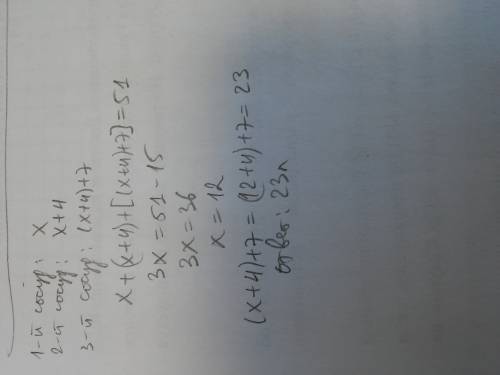 1-й сосуд: x
2-й сосуд: x+4
3-й сосуд: (x+4)+7
x+(x+4)+[(x+4)+7]=51
3x=51-15
3x=36
x=12
(x+4)+7=(12+4)+7=23
ответ: 23л